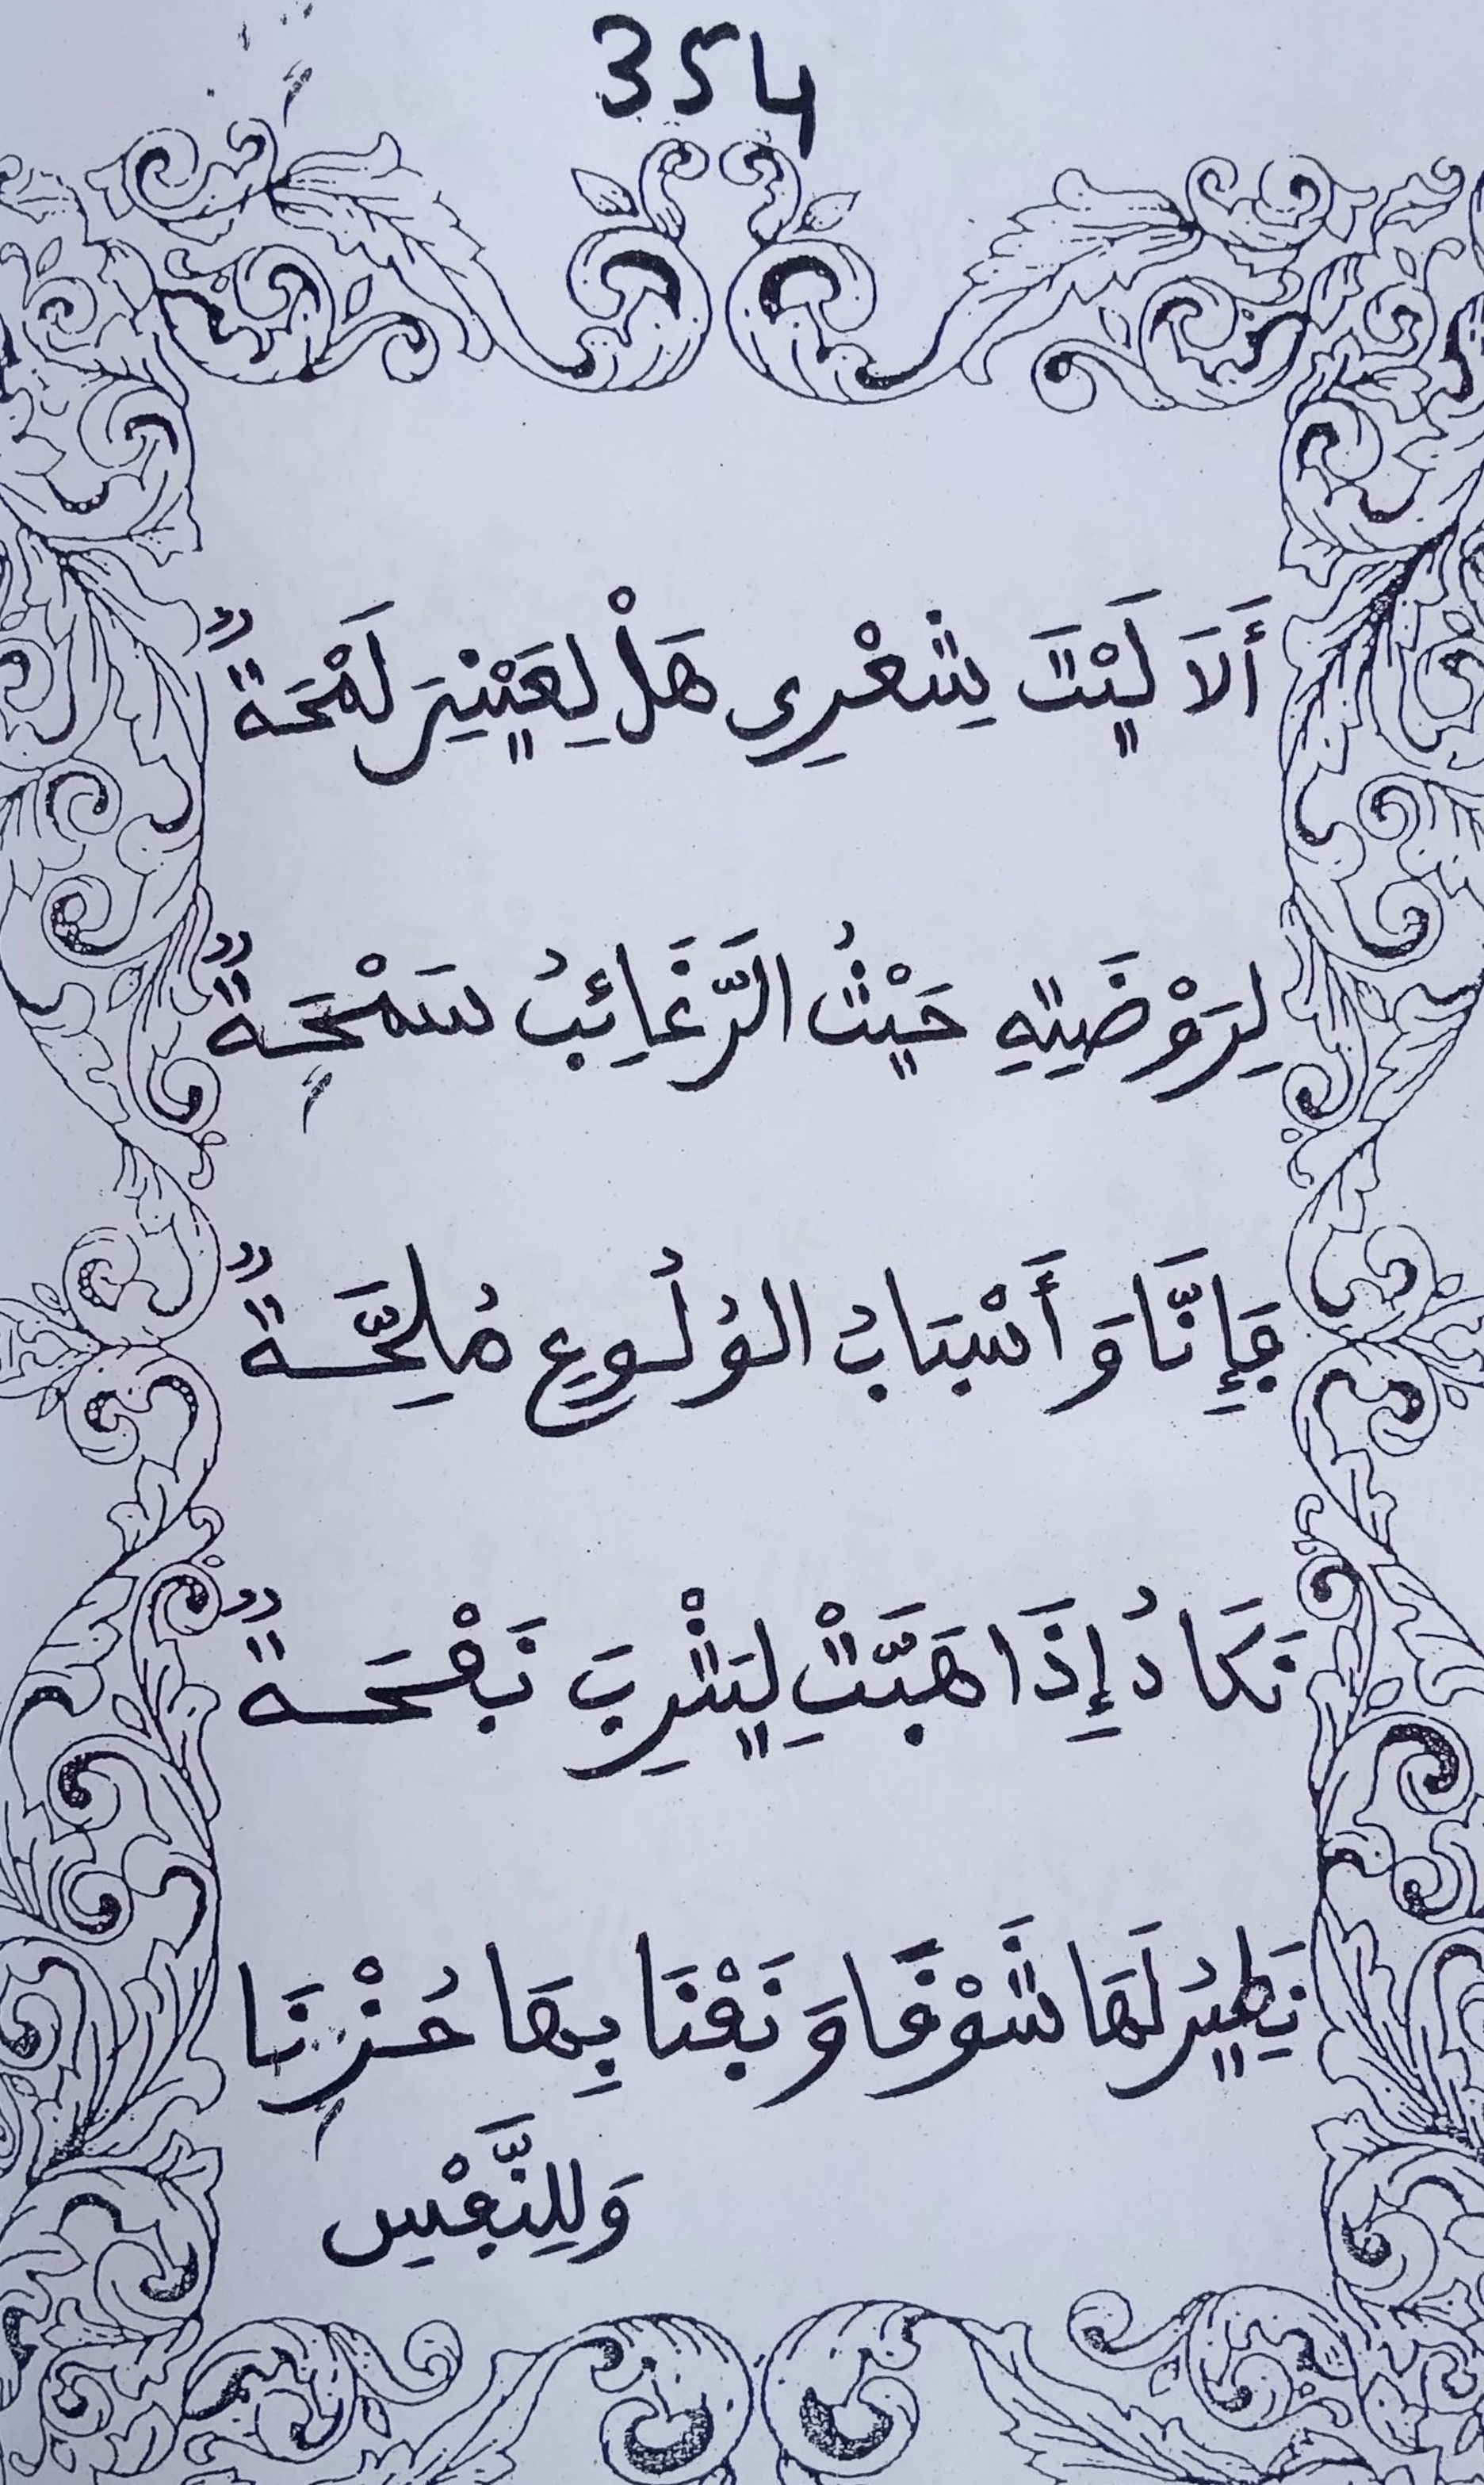 354
أَلَا لَيْتَ شِعْرِي هَلْ لِعَيْنِيَ لَمْحَةٌ
لِرَوْضَتِهِ حَيْثُ الرَّغَائِبُ سَمْحَةٌ
فَإِنَّا وَأَسْبَابُ الوُلُوعِ مُلِحَّةٌ
نَكَادُ إِذَا هَبَّتْ لِيَثْرِبَ نَفْحَةٌ
نَطِيرُ لَهَا شَوْقًا وَنَفْنَا بِهَا حُزْنَا
وَلِلنَّفْسِ